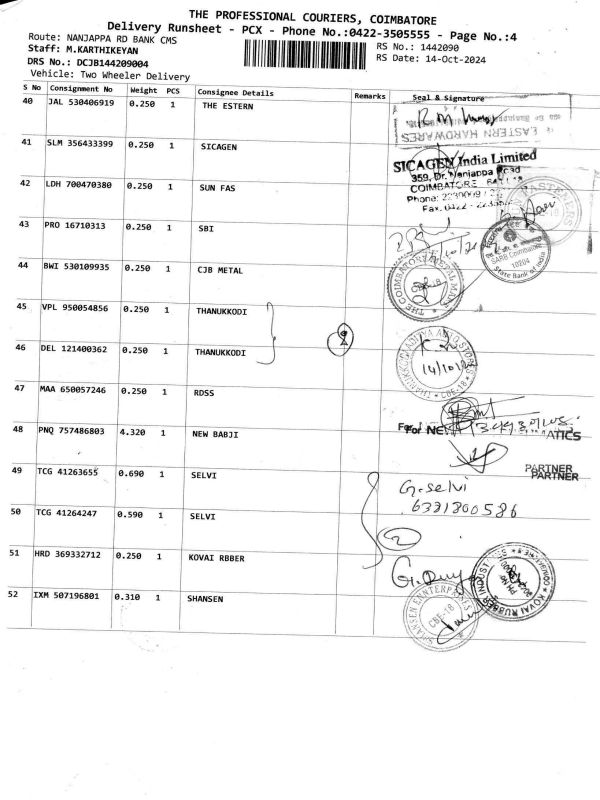 THE PROFESSIONAL COURIERS, COIMBATORE
Delivery Runsheet - PCX - Phone No.:0422-3505555 - Page No.:4
Route: NANJAPPA RD BANK CMS
RS No.: 1442090
Staff: M.KARTHIKEYAN
RS Date: 14-Oct-2024
DRS No.: DCJB144209004
Vehicle: Two Wheeler Delivery
S No Consignment No Weight PCS Consignee Details Remarks Seal & Signature
40 JAL 530406919 0.250 1 THE ESTERN
EASTERN HARDWARES
41 SLM 356433399 0.250 1 SICAGEN
SICAGEN India Limited
359, Dr. Nanjappa Road
COIMBATORE
Phone:
Fax: 0422 -
42 LDH 700470380 0.250 1 SUN FAS
FASTENERS
43 PRO 16710313 0.250 1 SBI
SARB Coimbatore
10204
State Bank of India
44 BWI 530109935 0.250 1 CJB METAL
THE COIMBATORE METAL MART
45 VPL 950054856 0.250 1 THANUKKODI
46 DEL 121400362 0.250 1 THANUKKODI
14/10/24
CBE-18
47 MAA 650057246 0.250 1 RDSS
48 PNQ 757486803 4.320 1 NEW BABJI
For NE
ATICS
PARTNER
PARTNER
49 TCG 41263655 0.690 1 SELVI
G. Selvi
6381800586
50 TCG 41264247 0.590 1 SELVI
2
51 HRD 369332712 0.250 1 KOVAI RBBER
KOVAI RUBBER INDUSTRIES
52 IXM 507196801 0.310 1 SHANSEN
SHANSEN ENNTERPRISES
CBE-18